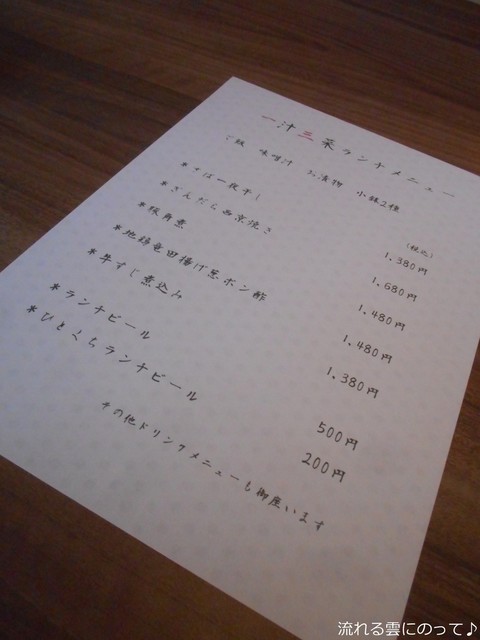 一汁三菜ランチメニュー
ご飯 味噌汁 お漬物 小鉢2種
(税込)
*さば一夜干し 1,380円
*ぎんだら西京焼き 1,680円
*豚角煮 1,480円
*地鶏竜田揚げ葱ポン酢 1,480円
*牛すじ煮込み 1,380円
*ランチビール 500円
*ひとくちランチビール 200円
その他ドリンクメニューも御座います
流れる雲にのって♪